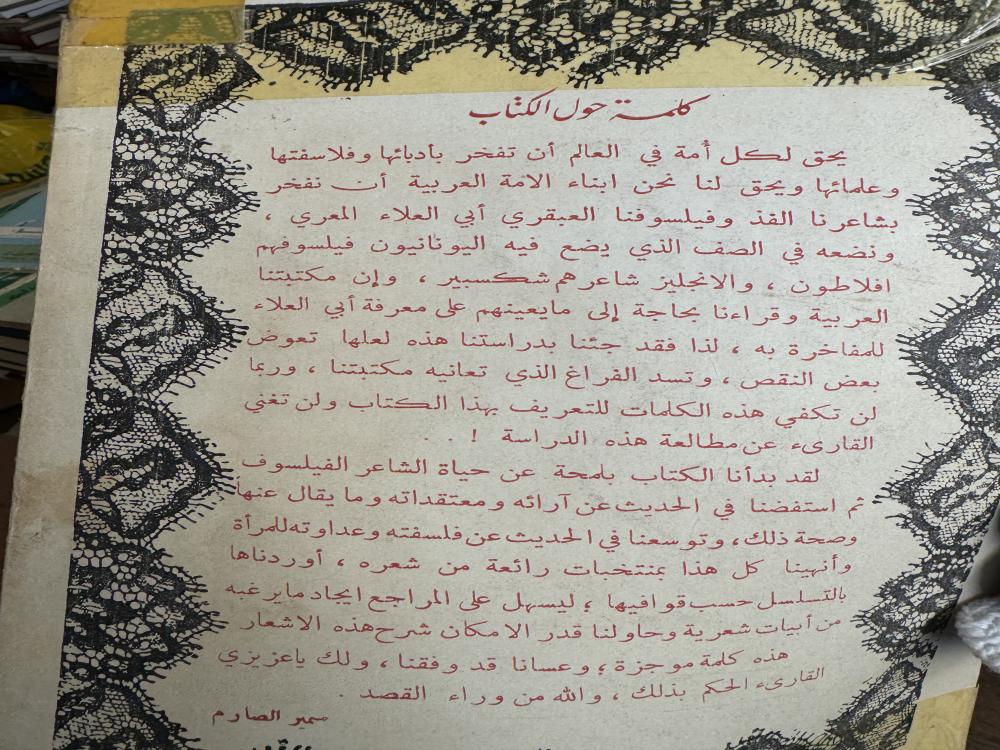 كلمة حول الكتاب
يحق لكل أمة في العالم أن تفخر بأدبائها وفلاسفتها
وعلمائها ويحق لنا نحن ابناء الامة العربية أن نفخر
بشاعرنا الفذ وفيلسوفنا العبقري أبي العلاء المعري ،
ونضعه في الصف الذي يضع فيه اليونانيون فيلسوفهم
افلاطون ، والانجليز شاعرهم شكسبير ، وإن مكتبتنا
العربية وقراءنا بحاجة إلى مايعينهم على معرفة أبي العلاء
للمفاخرة به ، لذا فقد جئنا بدراستنا هذه لعلها تعوض
بعض النقص ، وتسد الفراغ الذي تعانيه مكتبتنا ، وربما
لن تكفي هذه الكلمات للتعريف بهذا الكتاب ولن تغني
القارىء عن مطالعة هذه الدراسة ! . .
لقد بدأنا الكتاب بلمحة عن حياة الشاعر الفيلسوف
ثم استفضنا في الحديث عن آرائه ومعتقداته وما يقال عنها
وصحة ذلك ، وتوسعنا في الحديث عن فلسفته وعداوته للمرأة
وأنهينا كل هذا بمنتخبات رائعة من شعره ، أوردناها
بالتسلسل حسب قوافيها ؛ ليسهل على المراجع ايجاد مايرغبه
من أبيات شعرية وحاولنا قدر الامكان شرح هذه الاشعار
هذه كلمة موجزة ؛ وعسانا قد وفقنا ، ولك ياعزيزي
القارىء الحكم بذلك ، والله من وراء القصد .
سمير الصارم